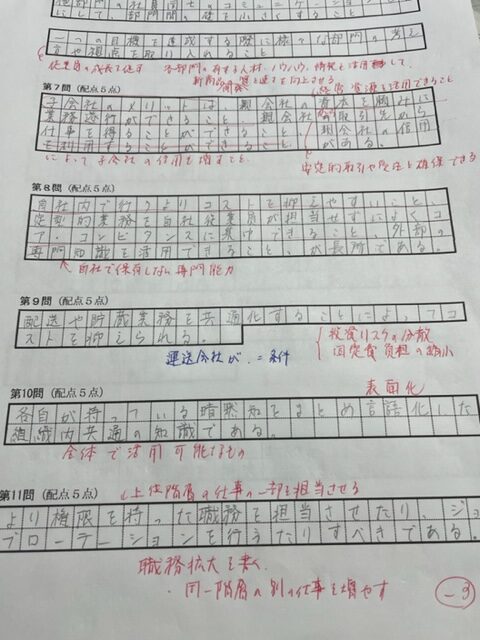 一つの目標を達成する際に様々な部門の考え
方や視点を取り入れること
従業員の成長を促す 各部門の有する人材、ノウハウ、情報を活用して、
新商品開発の質と速さを向上させる
第7問 (配点5点)
経営資源を活用できること
子会社のメリットは、親会社の資本を頼みに
業務遂行ができること、親会社の取引先から
仕事を得ることができること、親会社の信用
を利用することができること、がある。
によって子会社の信用を増すこと、
安定的取引や受注を確保できる
第8問 (配点5点)
自社内で行うよりコストを抑えやすいこと、
定型的業務を自社従業員が担当せずによくコ
ア・コンピタンスに集中できること、外部の
専門知識を活用できること、が長所である。
自社で保有しない専門能力
第9問 (配点5点)
配送や貯蔵業務を共通化することによってコ
ストを抑えられる。
投資リスクの分散
固定費負担の縮小
運送会社が
条件
第10問 (配点5点)
表面化
各自が持っている暗黙知をまとめ言語化した
組織内共通の知識である。
全体で活用可能なもの
第11問 (配点5点)
上位階層の仕事の一部を担当させる
より権限を持った職務を担当させたり、ジョ
ブローテーションを行うたりすべきである。
職務拡大を書く
・同一階層の別の仕事を増やす
-3